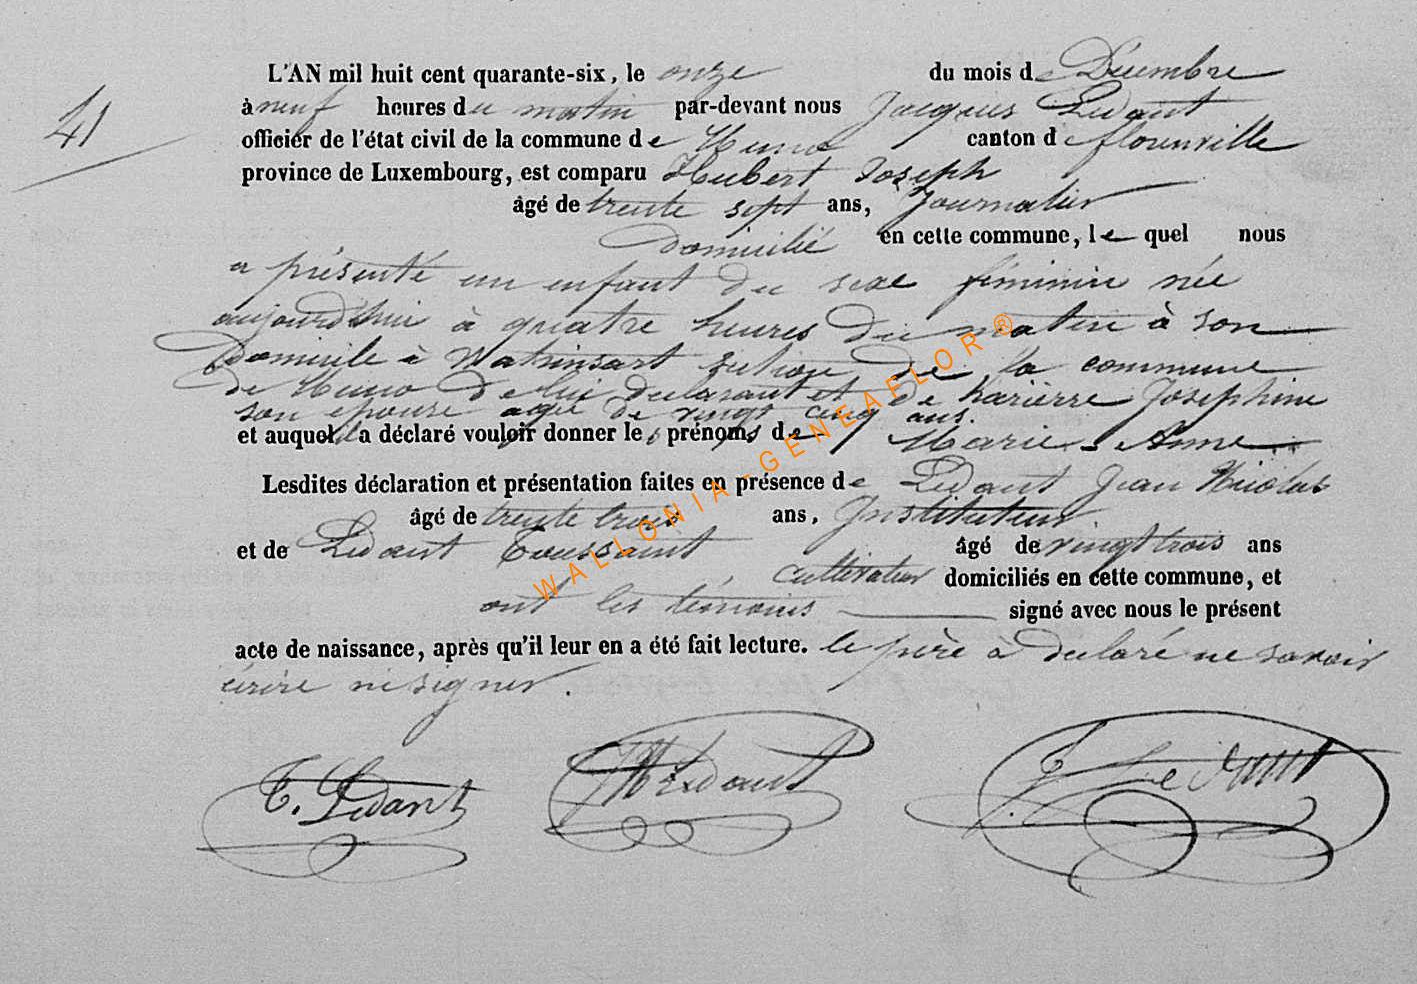 41
L'AN mil huit cent quarante-six, le onze du mois de Décembre
à neuf heures du matin par-devant nous Jacques Lédant
officier de l'état civil de la commune de Muno canton de florenville
province de Luxembourg, est comparu Hubert Joseph
âgé de trente sept ans, Journalier
Domicilié en cette commune, le quel nous
a présenté un enfant du sexe féminin née
aujourd'hui à quatre heures du matin à son
Domicile à Watrinsart section de la commune
de Muno de lui declarant et de Karierre Josephine
son epouse agée de vingt cinq ans.
et auquel il a déclaré vouloir donner les prénoms de Marie-Anne
Lesdites déclaration et présentation faites en présence de Lédant Jean Nicolas
âgé de trente trois ans, Instituteur
et de Lédant Toussaint âgé de vingt trois ans
cultivateur domiciliés en cette commune, et
ont les témoins signé avec nous le présent
acte de naissance, après qu'il leur en a été fait lecture. le père à declaré ne savoir
écrire ni signer.
T. Lédant JNLédant J. Lédant
WALLONIA-GENEAFLOR ®